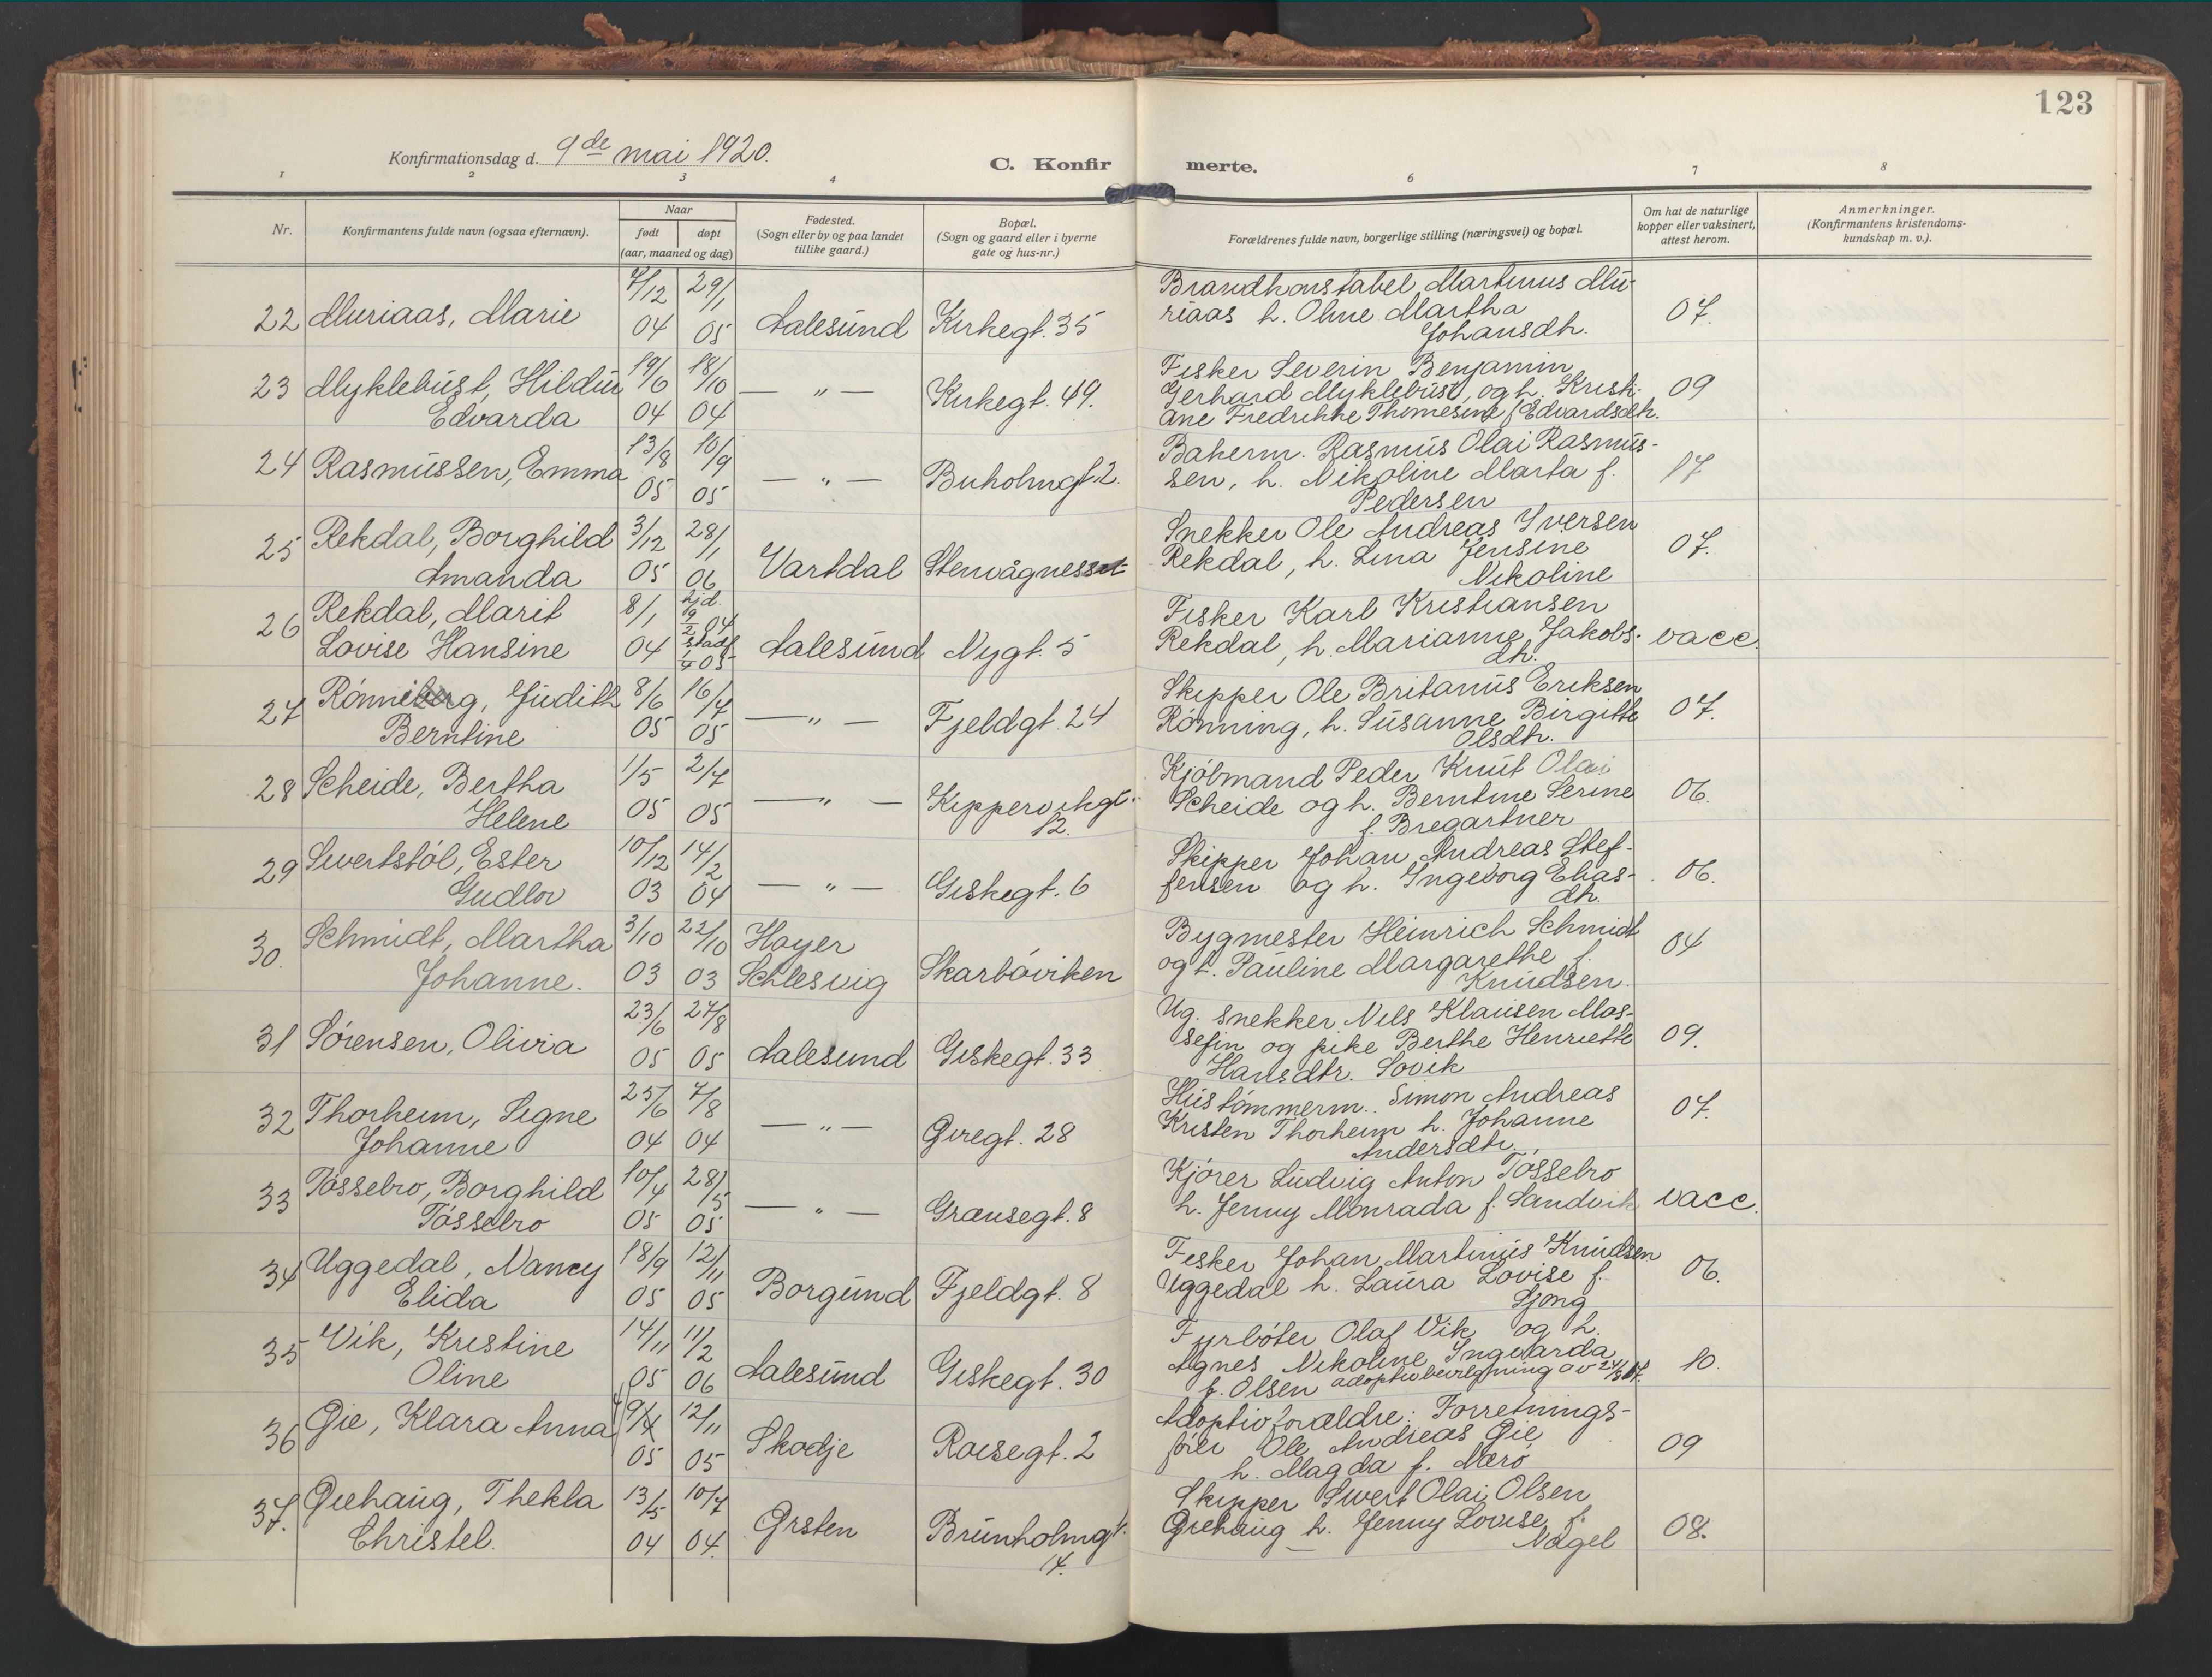 123
Konfirmationsdag d. 9de mai 1920.
C. Konfirmerte.
1 2 3 4 6 7 8
Nr.
Konfirmantens fulde navn (ogsaa efternavn).
Naar
født døpt
(aar, maaned og dag)
Fødested.
(Sogn eller by og paa landet
tillike gaard.)
Bopæl.
(Sogn og gaard eller i byerne
gate og hus-nr.)
Forældrenes fulde navn, borgerlige stilling (næringsvei) og bopæl.
Om hat de naturlige
kopper eller vaksinert,
attest herom.
Anmerkninger.
(Konfirmantens kristendoms-
kundskap m. v.).
22 Muriaas, Marie
7/12 04 29/1 05
Aalesund
Kirkegt. 35
Brandkonstabel Martinus Mu-
riaas h. Oline Martha
Johansdh.
07.
23 Myklebust, Hildur
Edvarda
19/6 04 18/10 04
— „ —
Kirkegt. 49.
Fisker Severin Benjamin
Gerhard Myklebust, og h. Kristi-
ane Fredrikke Thomesine f. Edvardsdh.
09
24 Rasmussen, Emma
13/8 05 10/9 05
— „ —
Buholmgt. 2.
Bakerm. Rasmus Olai Rasmus-
sen, h. Nikoline Marta f.
Pedersen
17
25 Rekdal, Borghild
Amanda
3/12 05 28/1 06
Vartdal
Stenvågnesset
Snekker Ole Andreas Iversen
Rekdal, h. Lina Jensine
Nikoline
07.
26 Rekdal, Marit
Lovise Hansine
8/1 04 hjd. 19/2 04 stadf. 1/4 05
Aalesund
Nygt. 5
Fisker Karl Kristiansen
Rekdal, h. Marianne Jakobs-
dh.
vacc.
27 Rønneberg, Judith
Berntine
8/6 05 16/7 05
— „ —
Fjeldgt. 24
Skipper Ole Britanus Eriksen
Rønning, h. Susanne Birgitte
Olsdh.
07.
28 Scheide, Bertha
Helene
1/5 05 2/7 05
— „ —
Kippervikgt.
12.
Kjøbmand Peder Knut Olai
Scheide og h. Berntine Serine
f. Bregartner
06.
29 Sivertstøl, Ester
Gudlov
10/12 03 14/2 04
— „ —
Giskegt. 6
Skipper Johan Andreas Stef-
fensen og h. Ingeborg Elias-
dh.
06.
30. Schmidt, Martha
Johanne.
3/10 03 22/10 03
Hoyer
Schlesvig
Skarbøviken
Bygmester Heinrich Schmidt
og h. Pauline Margarethe f.
Knudsen.
04
31 Sørensen, Olivia
23/6 05 27/8 05
Aalesund
Giskegt. 33
Ug. snekker Nils Klausen Mas-
sefin og pike Berthe Henriette
Hansdtr. Sovik
09.
32 Thorheim, Signe
Johanne
25/6 04 7/8 04
— „ —
Øvregt. 28
Hustømmerm. Simon Andreas
Kristen Thorheim h. Johanne
Andersdtr.
07.
33 Tøssebro, Borghild
Tøssebro
10/4 05 28/5 05
— „ —
Grænsegt. 8
Kjører Ludvig Anton Tøssebro
h. Jenny Monrada f. Sandvik
vacc.
34 Uggedal, Nancy
Elida
18/9 05 12/11 05
Borgund
Fjeldgt. 8
Fisker Johan Martinus Knudsen
Uggedal h. Laura Lovise f.
Sjong
06.
35 Vik, Kristine
Oline
14/11 05 11/2 06
Aalesund
Giskegt. 30
Fyrbøter Olaf Vik og h.
Agnes Nikoline Ingvarda
f. Olsen adoptivbevilgning av 24/8 17.
10.
36 Øie, Klara Anna
9/4 05 12/11 05
Skodje
Roisegt. 2
Adoptivforældre: Forretnings-
fører Ole Andreas Øie
h. Magda f. Nerø
09
37. Øiehaug, Thekla
Christel.
13/5 04 10/7 04.
Ørsten
Brunholmgt.
14.
Skipper Sivert Olai Olsen
Øiehaug h. Jenny Lovise f.
Nagel
08.